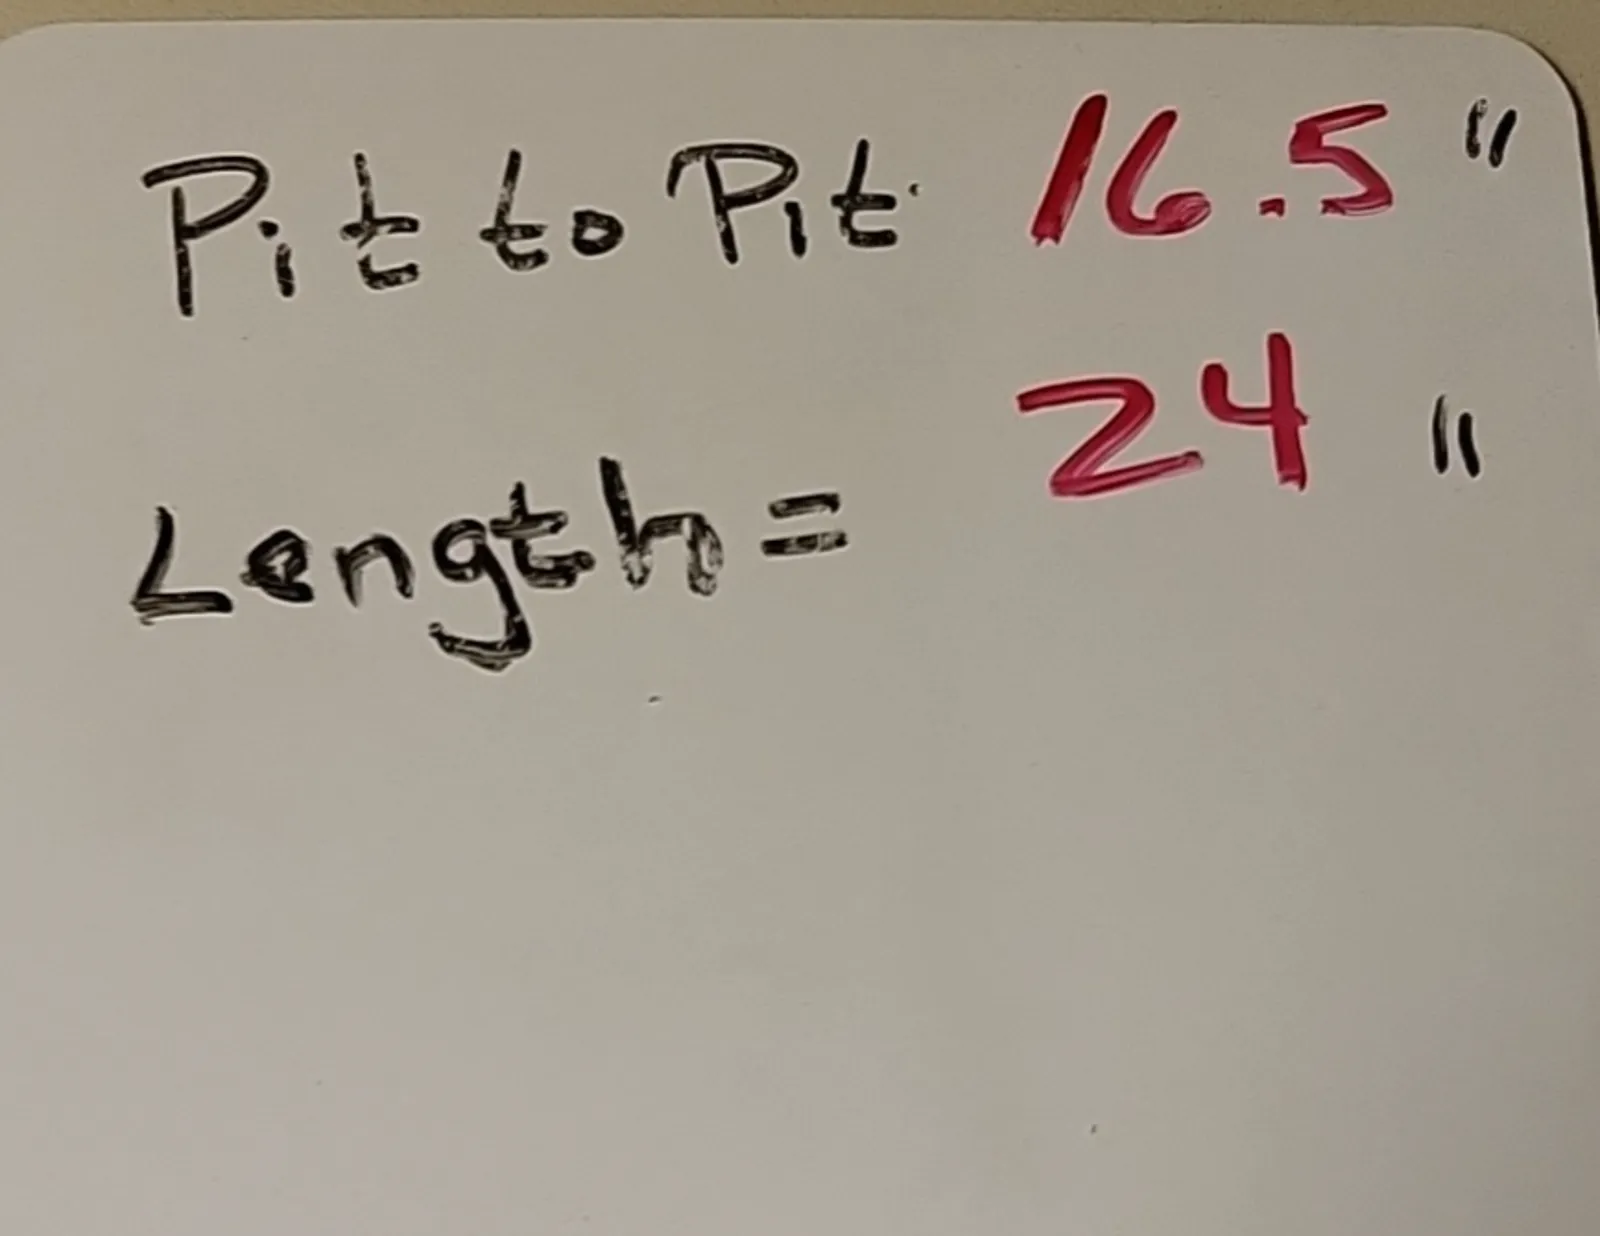 Pit to Pit 16.5"
Length = 24"